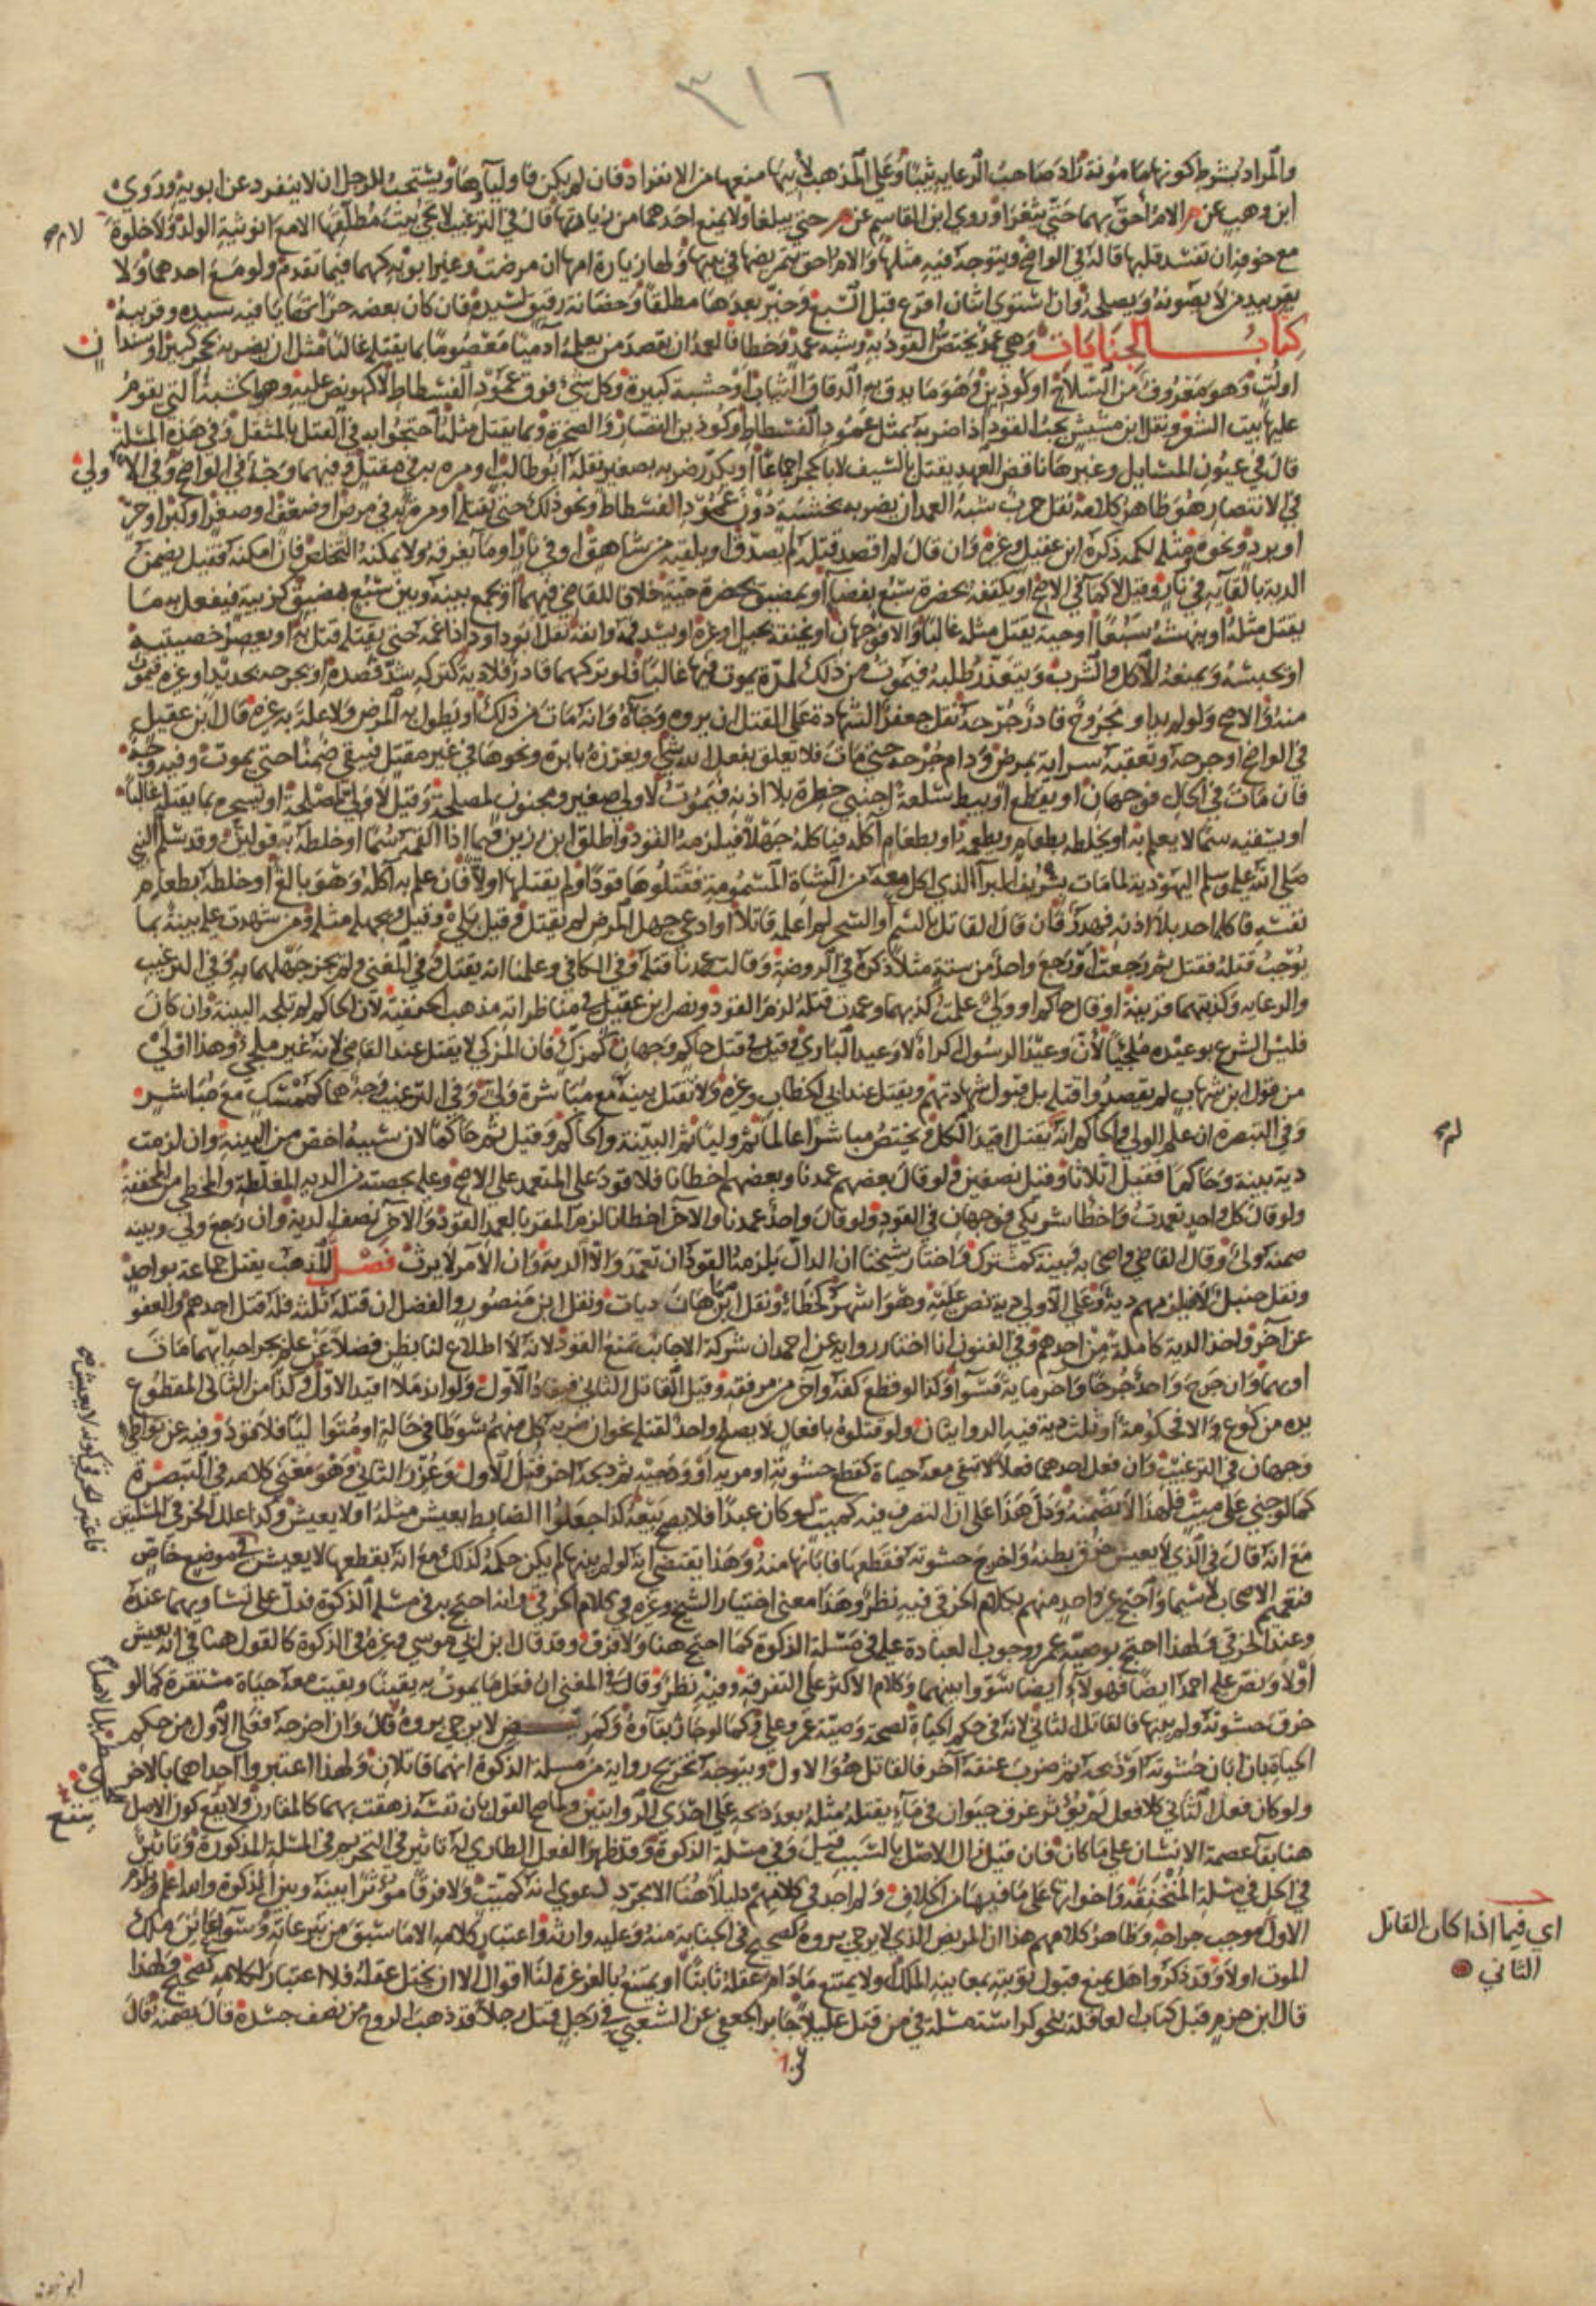 ٣١٦
والمراد بشرط كونها مأمونة زاد صاحب الرعاية ثيبا وعلى المذهب لأبيها منعها من الانفراد فان لم يكن فأولياؤها ويستحب للرجل ان لا ينفرد عن ابويه وروى
ابن وهب عن م الام أحق بهما حتى يثغرا وروى ابن القاسم عن م حتى يبلغا ولا يمنع احدهما من زيارتها قال في الترغيب لا يجئ بيت مطلقها الا مع انوثية الولد ولا خلوة لأم
مع خوفه ان تفسد قلبها قاله في الواضح ويتوجه فيه مثلها والام احق بتمريضها في بيتها ولها زيارة امها ان مرضت وغير ابويه كهما فيما تقدم ولو مع احدهما ولا
يقر بيد من لا يصونه ويصلحه وان استوى اثنان اقرع قبل السبع وخير بعدها مطلقا وحضانة رقيق لسيده فان كان بعضه حرا تهايأ فيه سيده وقريبه
كتاب الجنايات وهي عمد يختص القود به وشبه عمد وخطأ فالعمد ان يقصد من يعلمه آدميا معصوما بما يقتله غالبا مثل ان يضربه بحجر كبير او سندان
او لت وهو معروف من السلاح او كوذين وهو ما يدق به الدقاق الثياب او خشبة كبيرة وكل شيء فوق عمود الفسطاط لا كهو نص عليه وهو الخشبة التي يقوم
عليها بيت الشعر ونقل ابن مشيش يجب القود اذا ضربه بمثل عمود الفسطاط او كوذين القصار والصخرة وبما يقتل مثله احتجوا به في القتل بالمثقل وفي هذه المسئلة
قال في عيون المسايل وغيرها ناقض للعهد يقتل بالسيف لا بالحجر اجماعا او يكرر ضربه بصغير نقله ابو طالب او مرة به في مقتل وفيهما وجه في الواضح وفي الأولى
في الانتصار هو ظاهر كلامه نقل حرب شبه العمد ان يضربه بخشبة دون عمود الفسطاط ونحو ذلك حتى يقتله او مرة به في مرض او ضعف او صغر او كبر او حر
او برد ونحوه ومثله لكمه ذكره ابن عقيل وغيره وان قال لم اقصد قتله لم يصدق او يلقيه من شاهق او في نار او ما يغرقه ولا يمكنه التخلص فان امكنه فقيل يضمن
الدية بالقائه في نار وقيل لا كماء في الاصح او يكتفه بحضرة سبع بفضاء او بمضيق بحضرة حية خلافا للقاضي فيهما او يجمع بينه وبين سبع بمضيق كزبية فيفعل به ما
يقتل مثله او ينهشه سبعا او حية يقتل مثله غالبا والا فوجهان او يخنقه بحبل او غيره او يشد فمه وانفه نقل ابو داود اذا غمه حتى يقتله قتل به او يعصر خصيتيه
او يحبسه ويمنعه الاكل والشرب ويتعذر طلبه فيموت من ذلك لمدة يموت فيها غالبا فلو تركهما قادر فلا دية كتركه شد فصده او يجرحه بحديد او غيره فيموت
منه والاصح ولو لم يداو مجروح قادر جرحه نقل جعفر الشهادة على القتل ان يروه وجأه وانه مات من ذلك او يطول به المرض ولا علة به غيره قال ابن عقيل
في الواضح او جرحه وتعقبه سراية بمرض ودام جرحه حتى مات فلا تعلق بفعل الله شيء وبغرزه بابرة ونحوها في غير مقتل فبقي ضمنا حتى يموت وفيه وجه
فان مات في الحال فوجهان او يقطع او يبط سلعة اجنبي خطرة بلا اذنه فيموت لا ولي صغير ومجنون لمصلحة وقيل لا ولي لمصلحة او يسحره بما يقتل غالبا
او يسقيه سما لا يعلم به او يخلطه بطعام ويطعمه او بطعام آكله فياكله جهلا فيلزمه القود واطلق ابن رزين فيما اذا القمه سما او خلطه به قولين وقد سلم النبي
صلى الله عليه وسلم اليهودية لما مات بشر بن البراء الذي اكل معه من الشاة المسمومة فقتلوها قودا ولم يقتلها اولا فان علم به آكله وهو بالغ او خلطه بطعام
نفسه فاكله احد بلا اذنه فهدر فان قال القاتل بالسم او السحر لم اعلمه قاتلا او ادعى جهل المرض لم يقبل وقيل بلى وقيل ويجهله مثله ومن شهدت عليه بينة بما
يوجب قتله فقتل ثم رجعت او رجع واحد من ستة مثلا ذكره في الروضة وقالت عمدنا قتله وفي الكافي وعلمنا انه يقتل وفي المغني ولم يجز جهلهما به وفي الترغيب
والرعاية وكذبتهما قرينة او قال حاكم او ولي علمت كذبهما وعمدت قتله لزم القود ونصر ابن عقيل في مناظراته مذهب الحنفية لان الحاكم لم تلجه البينة وان كان
فليس الشرع بوعيده ملجئا لان وعيد الرسول اكراه لا وعيد الباري وقيل في قتل حاكم وجهان كمزك فان المزكي لا يقتل عند القاضي لانه غير ملجئ وهذا اولى
من قول ابن شهاب لم يقصدوا قتله بل قبول شهادتهم ويقتل عند ابي الخطاب وغيره ولا تقتل بينة مع مباشرة ولي وفي الترغيب وجه هما كممسك مع مباشر
وفي التبصرة ان علم الولي والحاكم انه يقتل اقيد الكل ويختص مباشرا عالما ثم وليا ثم البينة والحاكم وقيل ثم حاكما لان سببه اخص من البينة وان لزمت
دية بينة وحاكما فقيل اثلاثا وقيل نصفين ولو قال بعضهم عمدنا وبعضهم اخطأنا فلا قود على المتعمد على الاصح وعليه بحصته من الدية المغلظة والمخطئ من المخففة
ولو قال كل واحد تعمدت واخطأ شريكي فوجهان في القود ولو قال واحد عمدنا والآخر اخطأنا لزم المقر بالعمد القود والآخر نصف الدية وان رجع ولي وبينة
ضمنه ولي وقال القاضي واصحابه وبينة كمشترك واختار شيخنا ان الدال يلزمه القود ان تعمد والا الدية وان الآمر لا يرث فصل المذهب يقتل جماعة بواحد
ونقل حنبل لا فيلزمهم دية وعلى الاولى دية نص عليه وهو اشهر كخطأ ونقل ابن هانئ ديات ونقل ابن منصور والفضل ان قتله ثلاثة فله قتل احدهم والعفو
عن آخر واخذ الدية كاملة من احدهم وفي الفنون انا اختار رواية عن احمد ان شركة الاجانب تمنع القود لانه لا اطلاع لنا بظن فضلا عن علم بجراح ايهما مات
او بهما وان جرح واحد جرحا وآخر ماية فسواء وكذا لو قطع كفه وآخر من مرفقه وقيل القاتل الثاني فيقاد الاول ولو اندملا اقيد الاول وكذا من الثاني المقطوع
يده من كوع والا فحكومة او ثلث دية فيه الروايتان ولو قتلوه بافعال لا يصلح واحد لقتله نحو ان ضربه كل منهم سوطا في حالة او متواليا فلا قود وفيه عن تواطئ
وجهان في الترغيب وان فعل احدهما فعلا لا تبقى معه حياة كقطع حشوته او مريه او ودجيه ثم ذبحه آخر قتل الاول وعزر الثاني وهو معنى كلامه في التبصرة
كما لو جنى على ميت فلهذا لا يضمنه ودل هذا على ان التصرف فيه كميت لو كان عبدا فلا يصح بيعه كذا جعلوا الضابط يعيش مثله او لا يعيش وكذا علل الخرقي المسئلتين
مع انه قال في الذي لا يعيش خرق بطنه واخرج حشوته فقطعها فابانها منه وهذا يقتضي انه لو لم يبنها لم يكن حكمه كذلك مع انه بقطعها لا يعيش في موضع خاص
فتعميم الاصحاب لا سيما واحتج غير واحد منهم بكلام الخرقي فيه نظر وهذا معنى اختيار الشيخ وغيره في كلام الخرقي وانه احتج به في مسئلة الذكوة فدل على تساويهما عنده
وعند الخرقي ولهذا احتج بوصية عمر ووجوب العبادة عليه في مسئلة الذكوة كما احتج هنا ولا فرق وقد قال ابن ابي موسى وغيره في الذكوة كالقول هنا في انه يعيش
اولا ونص عليه احمد ايضا فهؤلاء ايضا سووا بينهما وكلام الاكثر على التفرقة وفيه نظر وقال في المغني ان فعل ما يموت به يقينا وبقيت معه حياة مستقرة كما لو
خرق حشوته ولم يبنها فالقاتل الثاني لانه في حكم الحياة لصحة وصية عمر وعلي وكما لو جاز بقاؤه وكمريض لا يرجى برؤه قال وان اخرجه فعل الاول من حكم
الحياة بان ابان حشوته او ذبحه ثم ضرب عنقه آخر فالقاتل هو الاول ويتوجه تخريج رواية من مسئلة الذكوة انهما قاتلان ولهذا اعتبروا احداهما بالاخرى
ولو كان فعل الثاني كلا فعل لم يؤثر غرق حيوان في ماء يقتله مثله بعد ذبحه على احدى الروايتين ولما صح القول بان نفسه زهقت بهما كالمقارن ولا يقع كون الاصل
هنا بقاء عصمة الانسان على ما كان فان قيل زال الاصل بالسبب قيل وفي مسئلة الذكوة وقد ظهر الفعل الطاري له تاثير في التحريم في المسئلة المذكورة وتاثير
في الحل في مسئلة المنخنقة واخواتها على ما فيها من الخلاف ولم اجد في كلامهم دليلا هنا الا مجرد دعوى انه كميت ولا فرقا مؤثرا بينه وبين الذكوة والله اعلم ويلزم
الاول موجب جراحه وظاهر كلامهم هذا ان المريض الذي لا يرجى برؤه كصحيح في الجناية منه وعليه وارثه واعتبار كلامه الا ما سبق من تبرعاته وسواء عاين ملك
الموت اولا وقد ذكروا هل يمنع قبول توبته بمعاينه الملك ولا يمتنع ما دام عقله ثابتا او يمتنع بالغرغرة لنا اقوال الا ان يختل عقله فلا اعتبار لكلامه كصحيح ولهذا
قال ابن حزم قبل كتاب العاقلة بنحو كراسة مسئلة في من قتل عليلا جابر الجعفي عن الشعبي في رجل قتل رجلا قد ذهب الروح من نصف جسده قال يضمنه قال
اي فيما اذا كان القاتل
الثاني